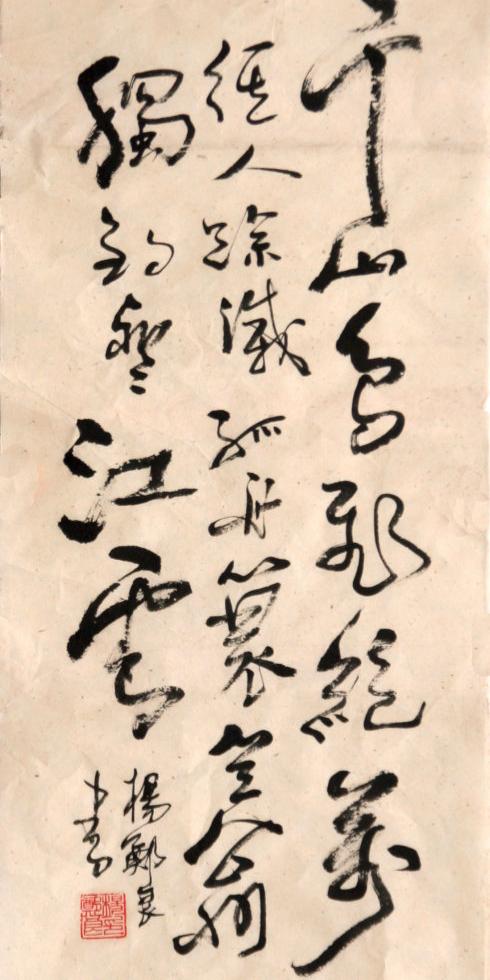 千山鳥飛絕萬
徑人踪滅孤舟簑笠翁
獨釣寒江雪
楊鄭
書